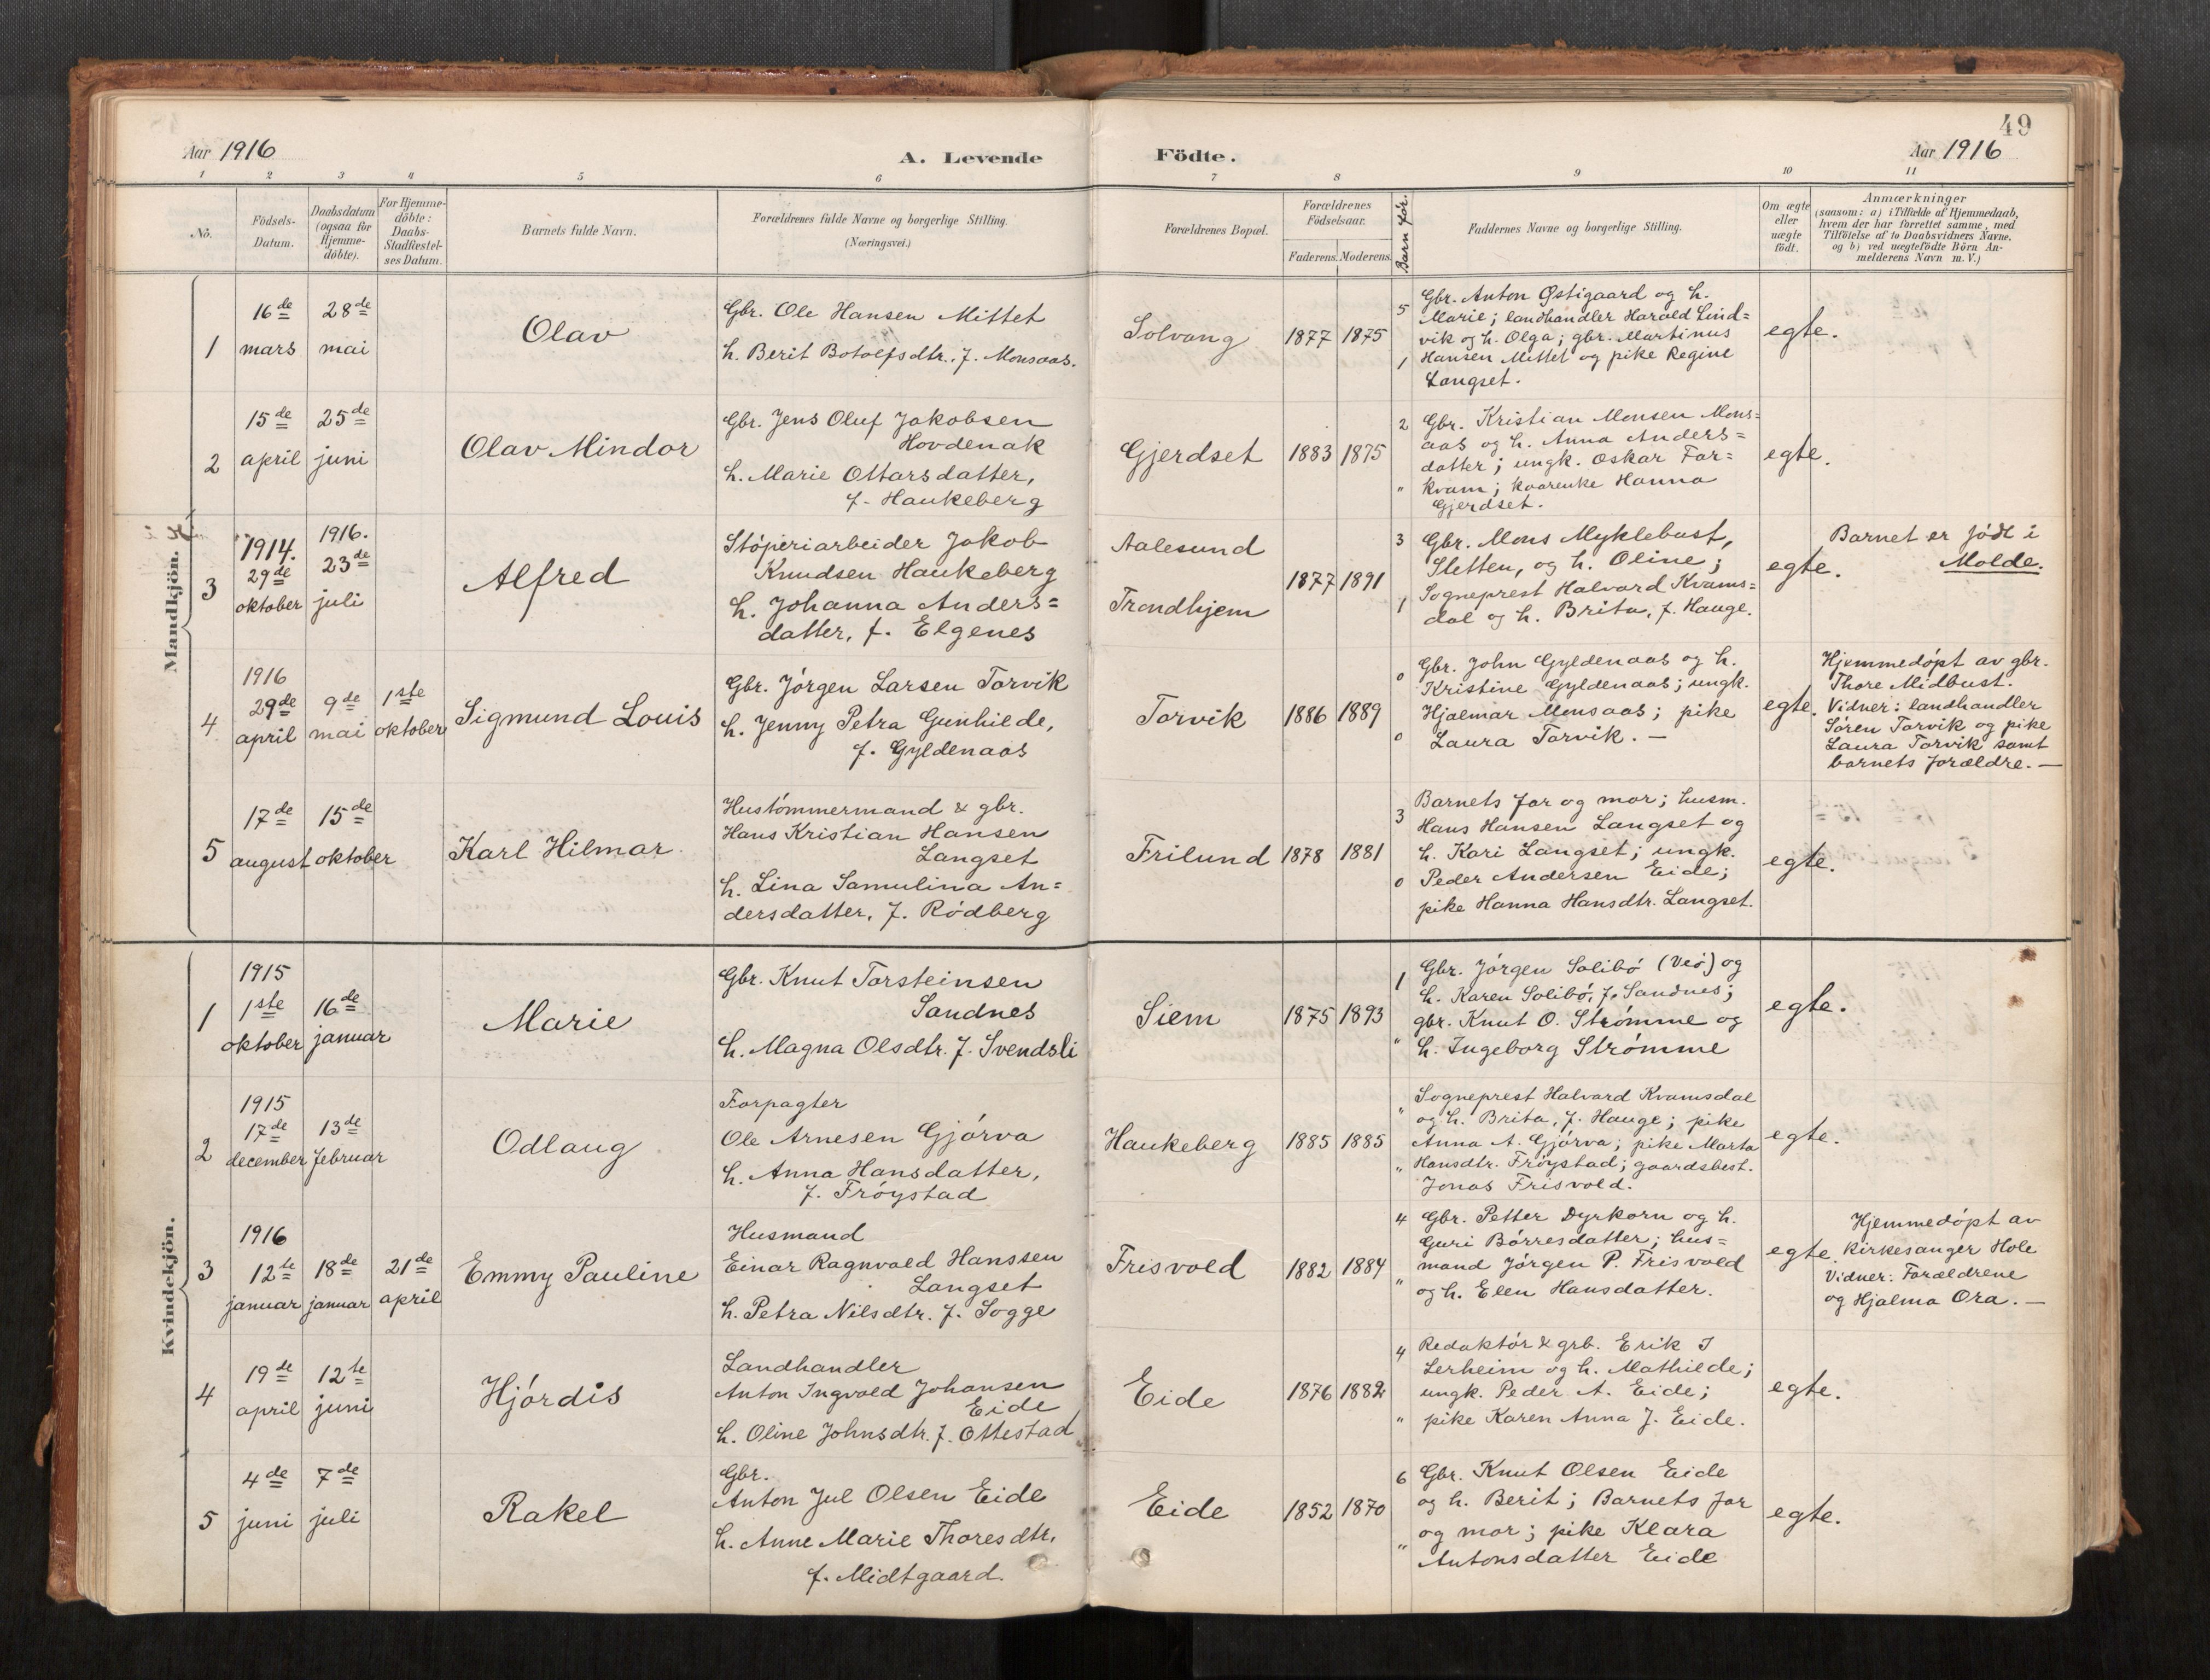 49
Aar 1916
A. Levende
Födte.
Aar 1916
1 2 3 4 5 6 7 8 9 10 11
No.
Födsels-
Datum.
Daabsdatum
(ogsaa for
Hjemme-
döbte).
For Hjemme-
döbte:
Daabs-
Stadfæstel-
ses Datum.
Barnets fulde Navn.
Forældrenes fulde Navne og borgerlige Stilling.
(Næringsvei.)
Forældrenes Bopæl.
Forældrenes
Födselsaar.
Faderens. Moderens.
Barn før.
Faddernes Navne og borgerlige Stilling.
Om ægte
eller
uægte
födt.
Anmærkninger
(saasom: a) i Tilfælde af Hjemmedaab,
hvem der har forrettet samme, med
Tilföielse af to Daabsvidners Navne.
og b) ved uægtefödte Börn An-
melderens Navn m. V.)
Mandkjön.
1
16de
mars
28de
mai
Olav
Gbr. Ole Hansen Mittet
h. Berit Botolfsdtr. f. Monsaas.
Solvang
1877 1875
5
1
Gbr. Anton Østigaard og h.
Marie; landhandler Harald Lind=
vik og h. Olga; gbr. Martinus
Hansen Mittet og pike Regine
Langset.
egte.
2
15de
april
25de
juni
Olav Mindor
Gbr. Jens Oluf Jakobsen
Hovdenak
h. Marie Ottarsdatter,
f. Haukeberg
Gjerdset
1883 1875
2
"
Gbr. Kristian Monsen Mons=
aas og h. Anna Anders=
datter; ungk. Oskar Far=
kvam; kaarenke Hanna
Gjerdset.
egte.
3
1914.
29de
oktober
1916.
23de
juli
Alfred
Stóperiarbeider Jakob
Knudsen Haukeberg
h. Johanna Anders=
datter, f. Elgenes
Aalesund
Trondhjem
1877 1891
3
1
Gbr. Mons Myklebust,
Sletten, og h. Oline;
Sogneprest Halvard Kvams=
dal og h. Brita, f. Hauge.
egte.
Barnet er fódt i
Molde.
4
1916
29de
april
9de
mai
1ste
oktober
Sigmund Louis
Gbr. Jórgen Larsen Torvik
h. Jenny Petra Gunhilde,
f. Gyldenaas
Torvik
1886 1889
0
0
Gbr. John Gyldenaas og h.
Kristine Gyldenaas; ungk.
Hjalmar Monsaas; pike
Laura Torvik. —
egte.
Hjemmedópt av gbr.
Thore Midbust.
Vidner: landhandler
Sóren Torvik og pike
Laura Torvik samt
barnets forældre. —
5
17de
august
15de
oktober
Karl Hilmar
Hustómmermand & gbr.
Hans Kristian Hansen
Langset
h. Lina Samulina An=
dersdatter, f. Ródberg
Frilund
1878 1881
3
0
Barnets far og mor; husm.
Hans Hansen Langset og
h. Kari Langset; ungk.
Peder Andersen Eide;
pike Hanna Hansdtr. Langset.
egte.
Kvindekjön.
1
1915
1ste
oktober
16de
januar
Marie
Gbr. Knut Torsteinsen
Sandnes
h. Magna Olsdtr. f. Svendsli
Siem
1875 1893
1
"
Gbr. Jórgen Solibó (Veó) og
h. Karen Solibó, f. Sandnes;
gbr. Knut O. Strómme og
h. Ingeborg Strómme
egte.
2
1915
17de
december
13de
februar
Odlaug
Forpagter
Ole Arnesen Gjórva
h. Anna Hansdatter,
f. Fróystad
Haukeberg
1885 1885
"
"
Sogneprest Halvard Kvamsdal
og h. Brita, f. Hauge; pike
Anna A. Gjórva; pike Marta
Hansdtr. Fróystad; gaardsbest.
Jonas Frisvold.
egte.
3
1916
12te
januar
18de
januar
21de
april
Emmy Pauline
Husmand
Einar Ragnvald Hanssen
Langset
h. Petra Nilsdtr. f. Sogge
Frisvold
1882 1884
4
"
Gbr. Petter Dyrkorn og h.
Guri Bórresdatter; hus=
mand Jórgen P. Frisvold
og h. Elen Hansdatter.
egte.
Hjemmedópt av
kirkesanger Hole
Vidner: Forældrene
og Hjalma Ora. —
4
19de
april
12te
juni
Hjórdis
Landhandler
Anton Ingvald Johansen
Eide
h. Oline Johnsdtr. f. Ottestad
Eide
1876 1882
4
"
Redaktór & grb. Erik I
Lerheim og h. Mathilde;
ungk. Peder A. Eide;
pike Karen Anna J. Eide.
egte.
5
4de
juni
7de
juli
Rakel
Gbr.
Anton Jul Olsen Eide
h. Anne Marie Thoresdtr.
f. Midtgaard.
Eide
1852 1870
6
"
Gbr. Knut Olsen Eide
og h. Berit; Barnets far
og mor; pike Klara
Antonsdatter Eide
egte.